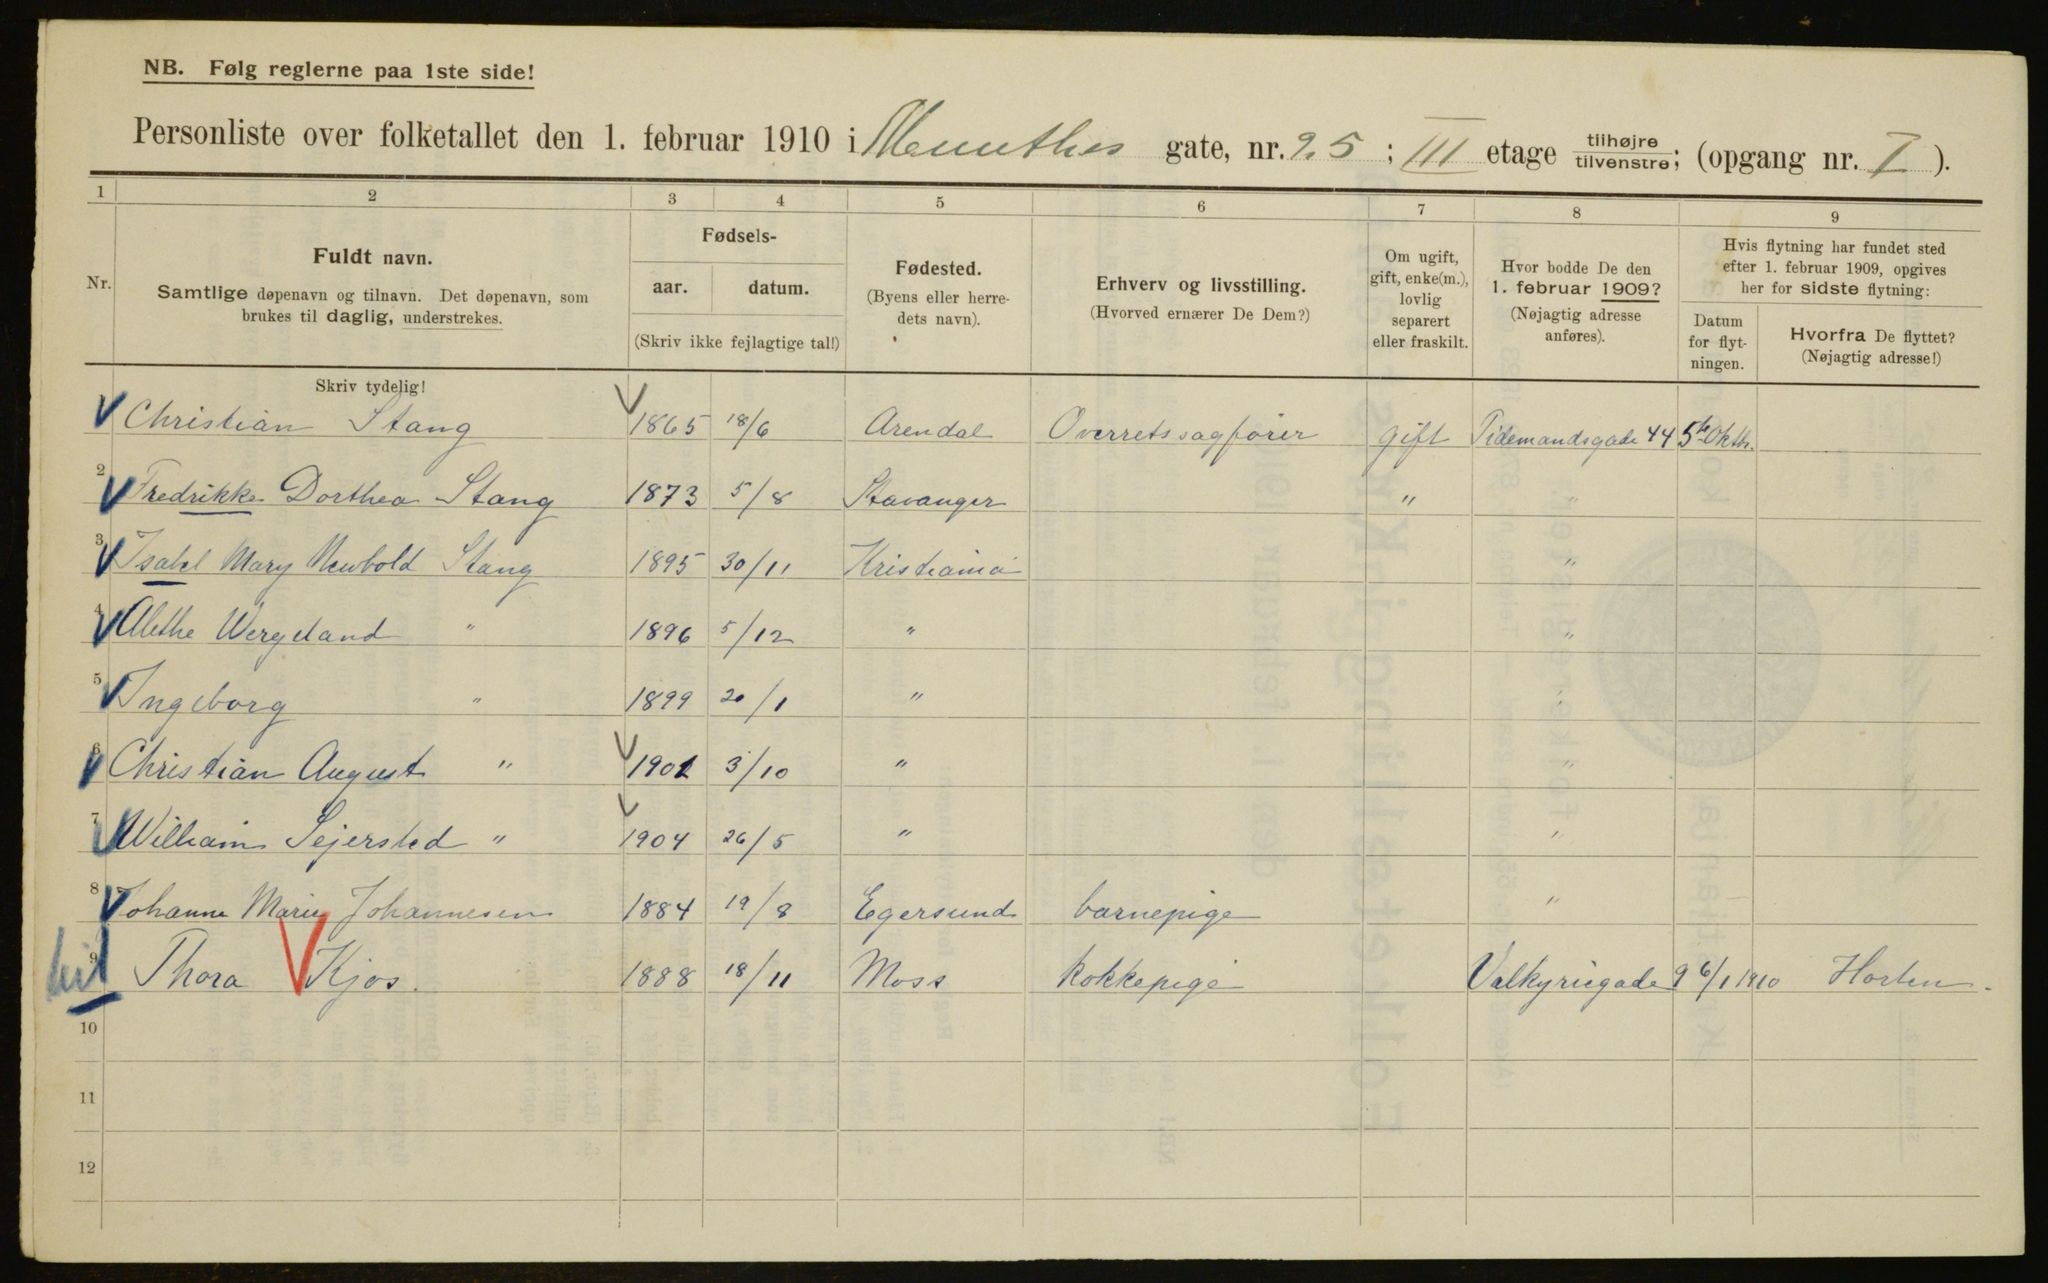 NB. Følg reglerne paa 1ste side!
Personliste over folketallet den 1. februar 1910 i Munthes gate, nr. 25 ; III etage tilhøjre/tilvenstre; (opgang nr. I ).
1 2 3 4 5 6 7 8 9
Nr. Fuldt navn. Samtlige døpenavn og tilnavn. Det døpenavn, som brukes til daglig, understrekes. Fødsels- aar. datum. (Skriv ikke fejlagtige tal!) Fødested. (Byens eller herredets navn). Erhverv og livsstilling. (Hvorved ernærer De Dem?) Om ugift, gift, enke(m.), lovlig separert eller fraskilt. Hvor bodde De den 1. februar 1909? (Nøjagtig adresse anføres). Hvis flytning har fundet sted efter 1. februar 1909, opgives her for sidste flytning: Datum for flytningen. Hvorfra De flyttet? (Nøjagtig adresse!)
Skriv tydelig!
Christian Stang 1865 18/6 Arendal Overretssagfører gift Tidemandsgade 44 5te Oktb.
2 Fredrikke Dorthea Stang 1873 5/8 Stavanger " "
3 Isabel Mary Newbold Stang 1895 30/11 Kristiania "
4 Alethe Wergeland " 1896 5/12 " "
5 Ingeborg " 1899 20/1 " "
6 Christian August " 1901 3/10 " "
7 William Sejersted " 1904 26/5 " "
8 Johanne Marie Johannesen 1884 19/8 Egersund barnepige "
9 Thora Kjos. 1888 18/11 Moss kokkepige Valkyriegade 9 6/1 1910 Horten.
10
11
12